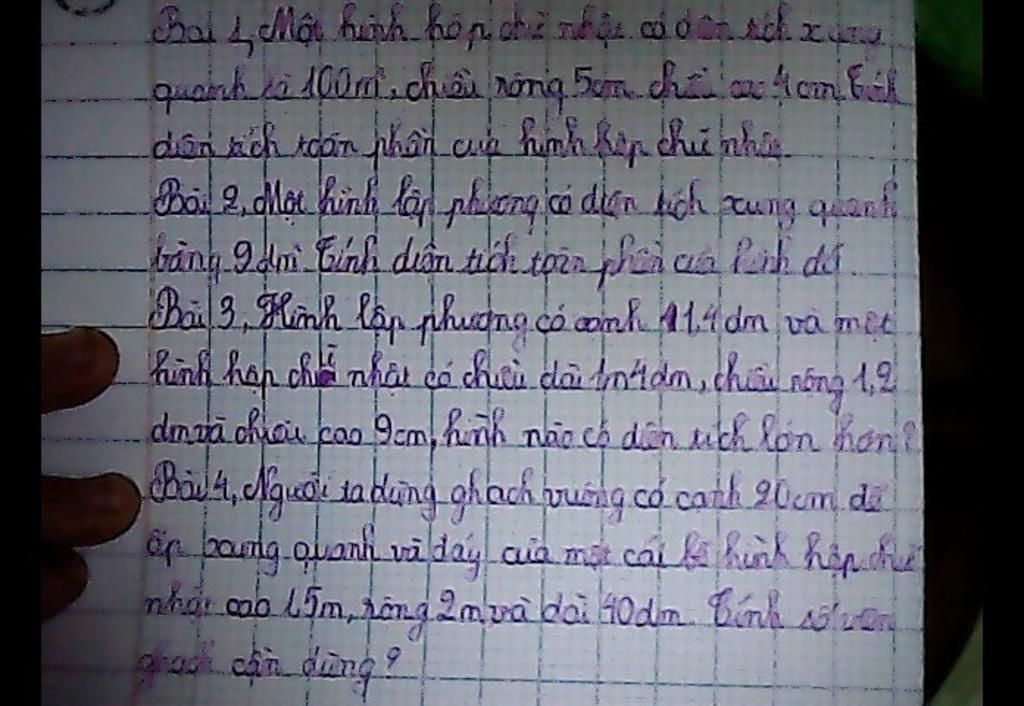 Bài 1, Một hình hộp chữ nhật có diện tích xung
quanh là 100m², chiều rộng 5cm chiều cao 4cm. Tính
diện tích toàn phần của hình hộp chữ nhật.
Bài 2, Một hình lập phương có diện tích xung quanh
bằng 9dm². Tính diện tích toàn phần của hình đó.
Bài 3, Hình lập phương có cạnh 11,4dm và một
hình hộp chữ nhật có chiều dài 1m4dm, chiều rộng 1,2
dm và chiều cao 9cm, hình nào có diện tích lớn hơn?
Bài 4, Người ta dùng ghạch vuông có cạnh 20cm để
ốp xung quanh và đáy của một cái bể hình hộp chữ
nhật cao 1,5m, rộng 2m và dài 40dm. Tính số viên
ghạch cần dùng?